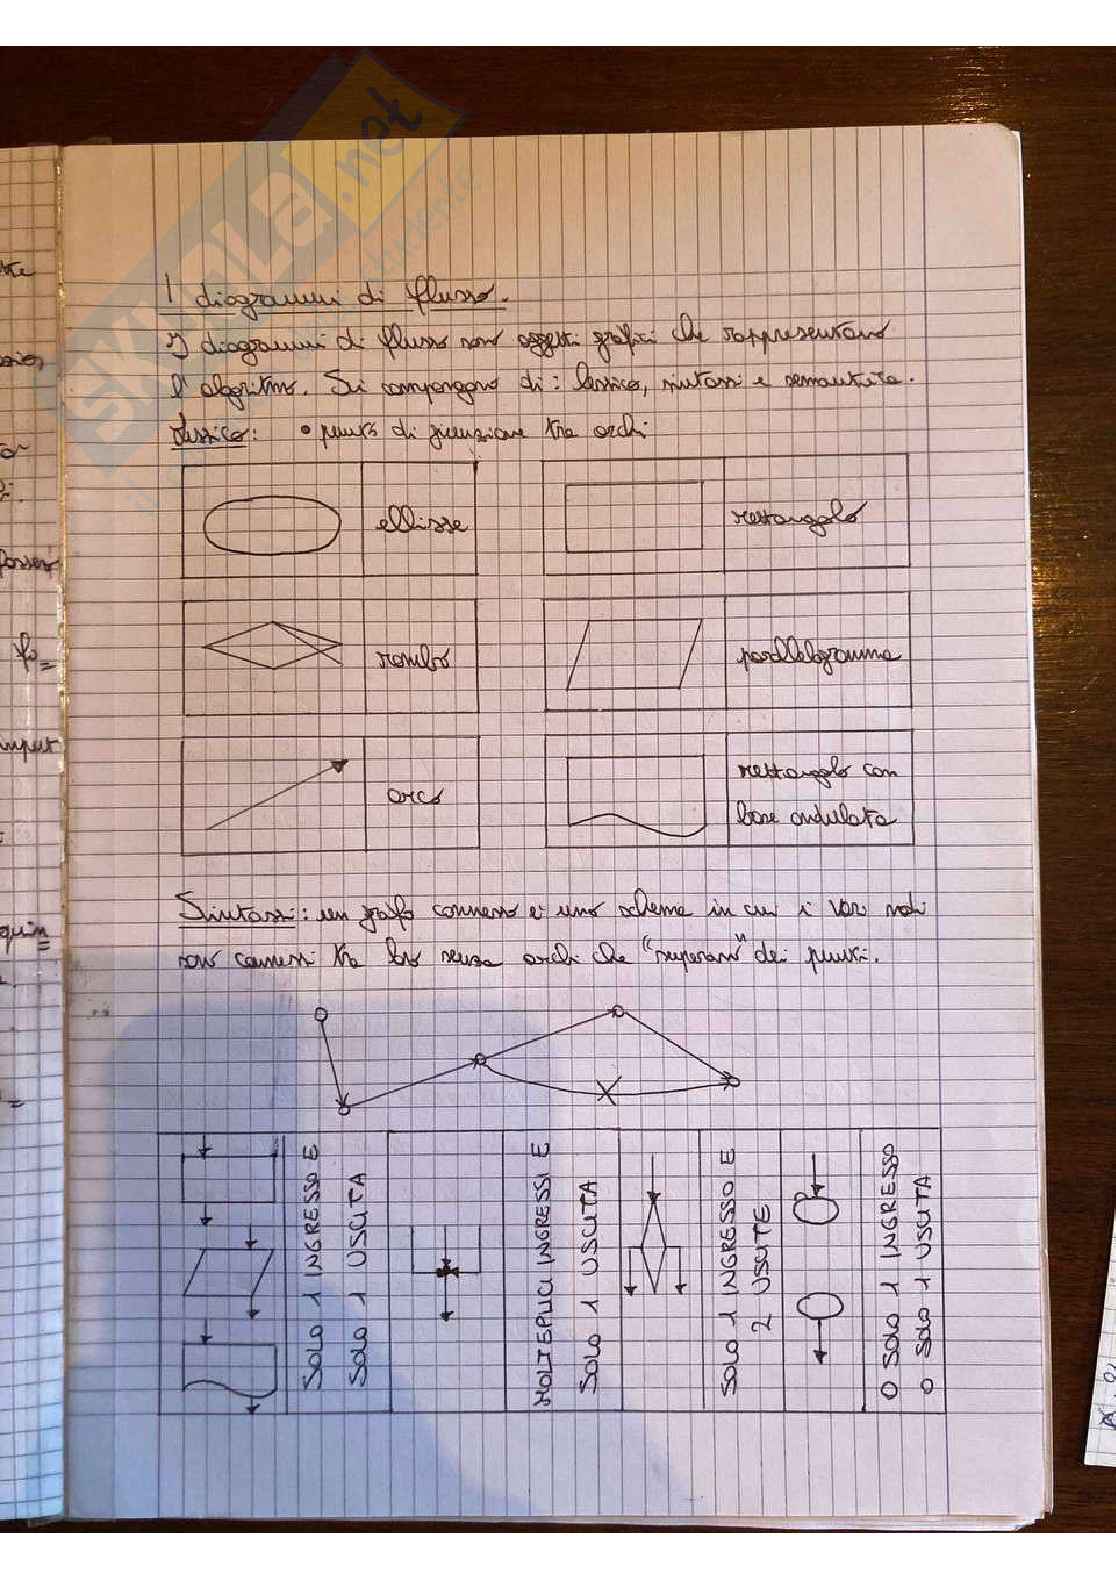 I diagrammi di flusso.
I diagrammi di flusso sono oggetti grafici che rappresentano
l'algoritmo. Si compongono di: lessico, sintassi e semantica.
Lessico: • punto di giunzione tra archi
ellisse
rettangolo
rombo
parallelogramma
arco
rettangolo con
base ondulata
Sintassi: un grafo connesso è uno schema in cui i vari nodi
sono connessi tra loro senza archi che "superano" dei punti.
SOLO 1 INGRESSO E
SOLO 1 USCITA
MOLTEPLICI INGRESSI E
SOLO 1 USCITA
SOLO 1 INGRESSO E
2 USCITE
O SOLO 1 INGRESSO
O SOLO 1 USCITA
input
SKUOLA.net